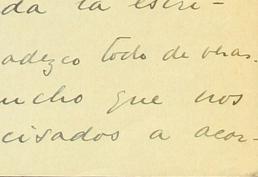 da la escri-
adezco todo de veras.
ucho que nos
cisados a acor-